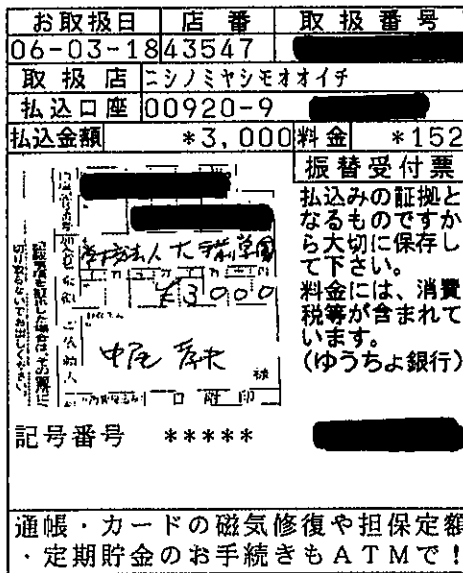 お取扱日 店番 取扱番号
06-03-18 43547
取扱店 ニシノミヤシモオオイチ
払込口座 00920-9
払込金額 *3,000 料金 *152
振替受付票
払込みの証拠と
なるものですか
ら大切に保存し
て下さい。
料金には、消費
税等が含まれて
います。
(ゆうちょ銀行)
学校法人大手前学園
¥3000
様
記号番号 *****
通帳・カードの磁気修復や担保定額
・定期貯金のお手続きもATMで!